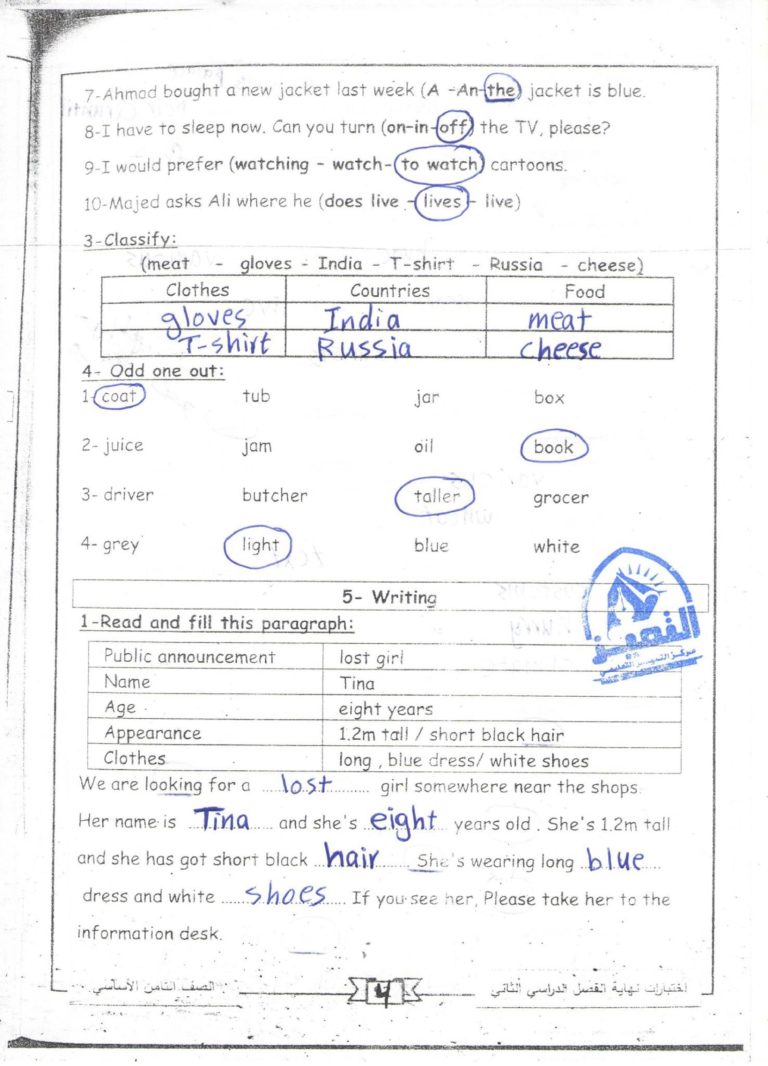 7-Ahmad bought a new jacket last week (A -An-the) jacket is blue.
8-I have to sleep now. Can you turn (on-in-off) the TV, please?
9-I would prefer (watching - watch- to watch) cartoons.
10-Majed asks Ali where he (does live - lives - live)
3-Classify:
(meat - gloves - India - T-shirt - Russia - cheese)
Clothes Countries Food
gloves India meat
T-shirt Russia cheese
4- Odd one out:
1- coat tub jar box
2- juice jam oil book
3- driver butcher taller grocer
4- grey light blue white
5- Writing
1-Read and fill this paragraph:
Public announcement lost girl
Name Tina
Age eight years
Appearance 1.2m tall / short black hair
Clothes long , blue dress/ white shoes
التميز
مركز التميز التعليمي
We are looking for a ....lost.......... girl somewhere near the shops.
Her name is ...Tina..... and she's ..eight... years old . She's 1.2m tall
and she has got short black ..hair....... She's wearing long ..blue....
dress and white ......shoes..... If you see her, Please take her to the
information desk.
الصف الثامن الأساسي
اختبارات نهاية الفصل الدراسي الثاني